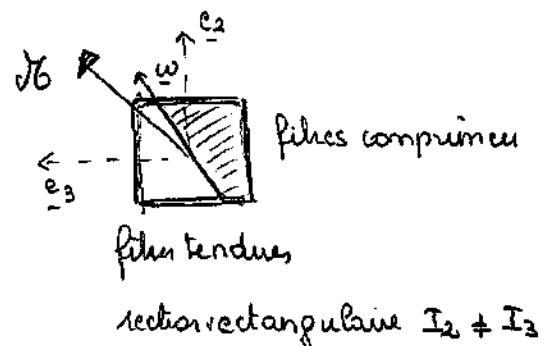 e2
M
ω
fibres comprimées
e3
fibres tendues
section rectangulaire I2 ≠ I3